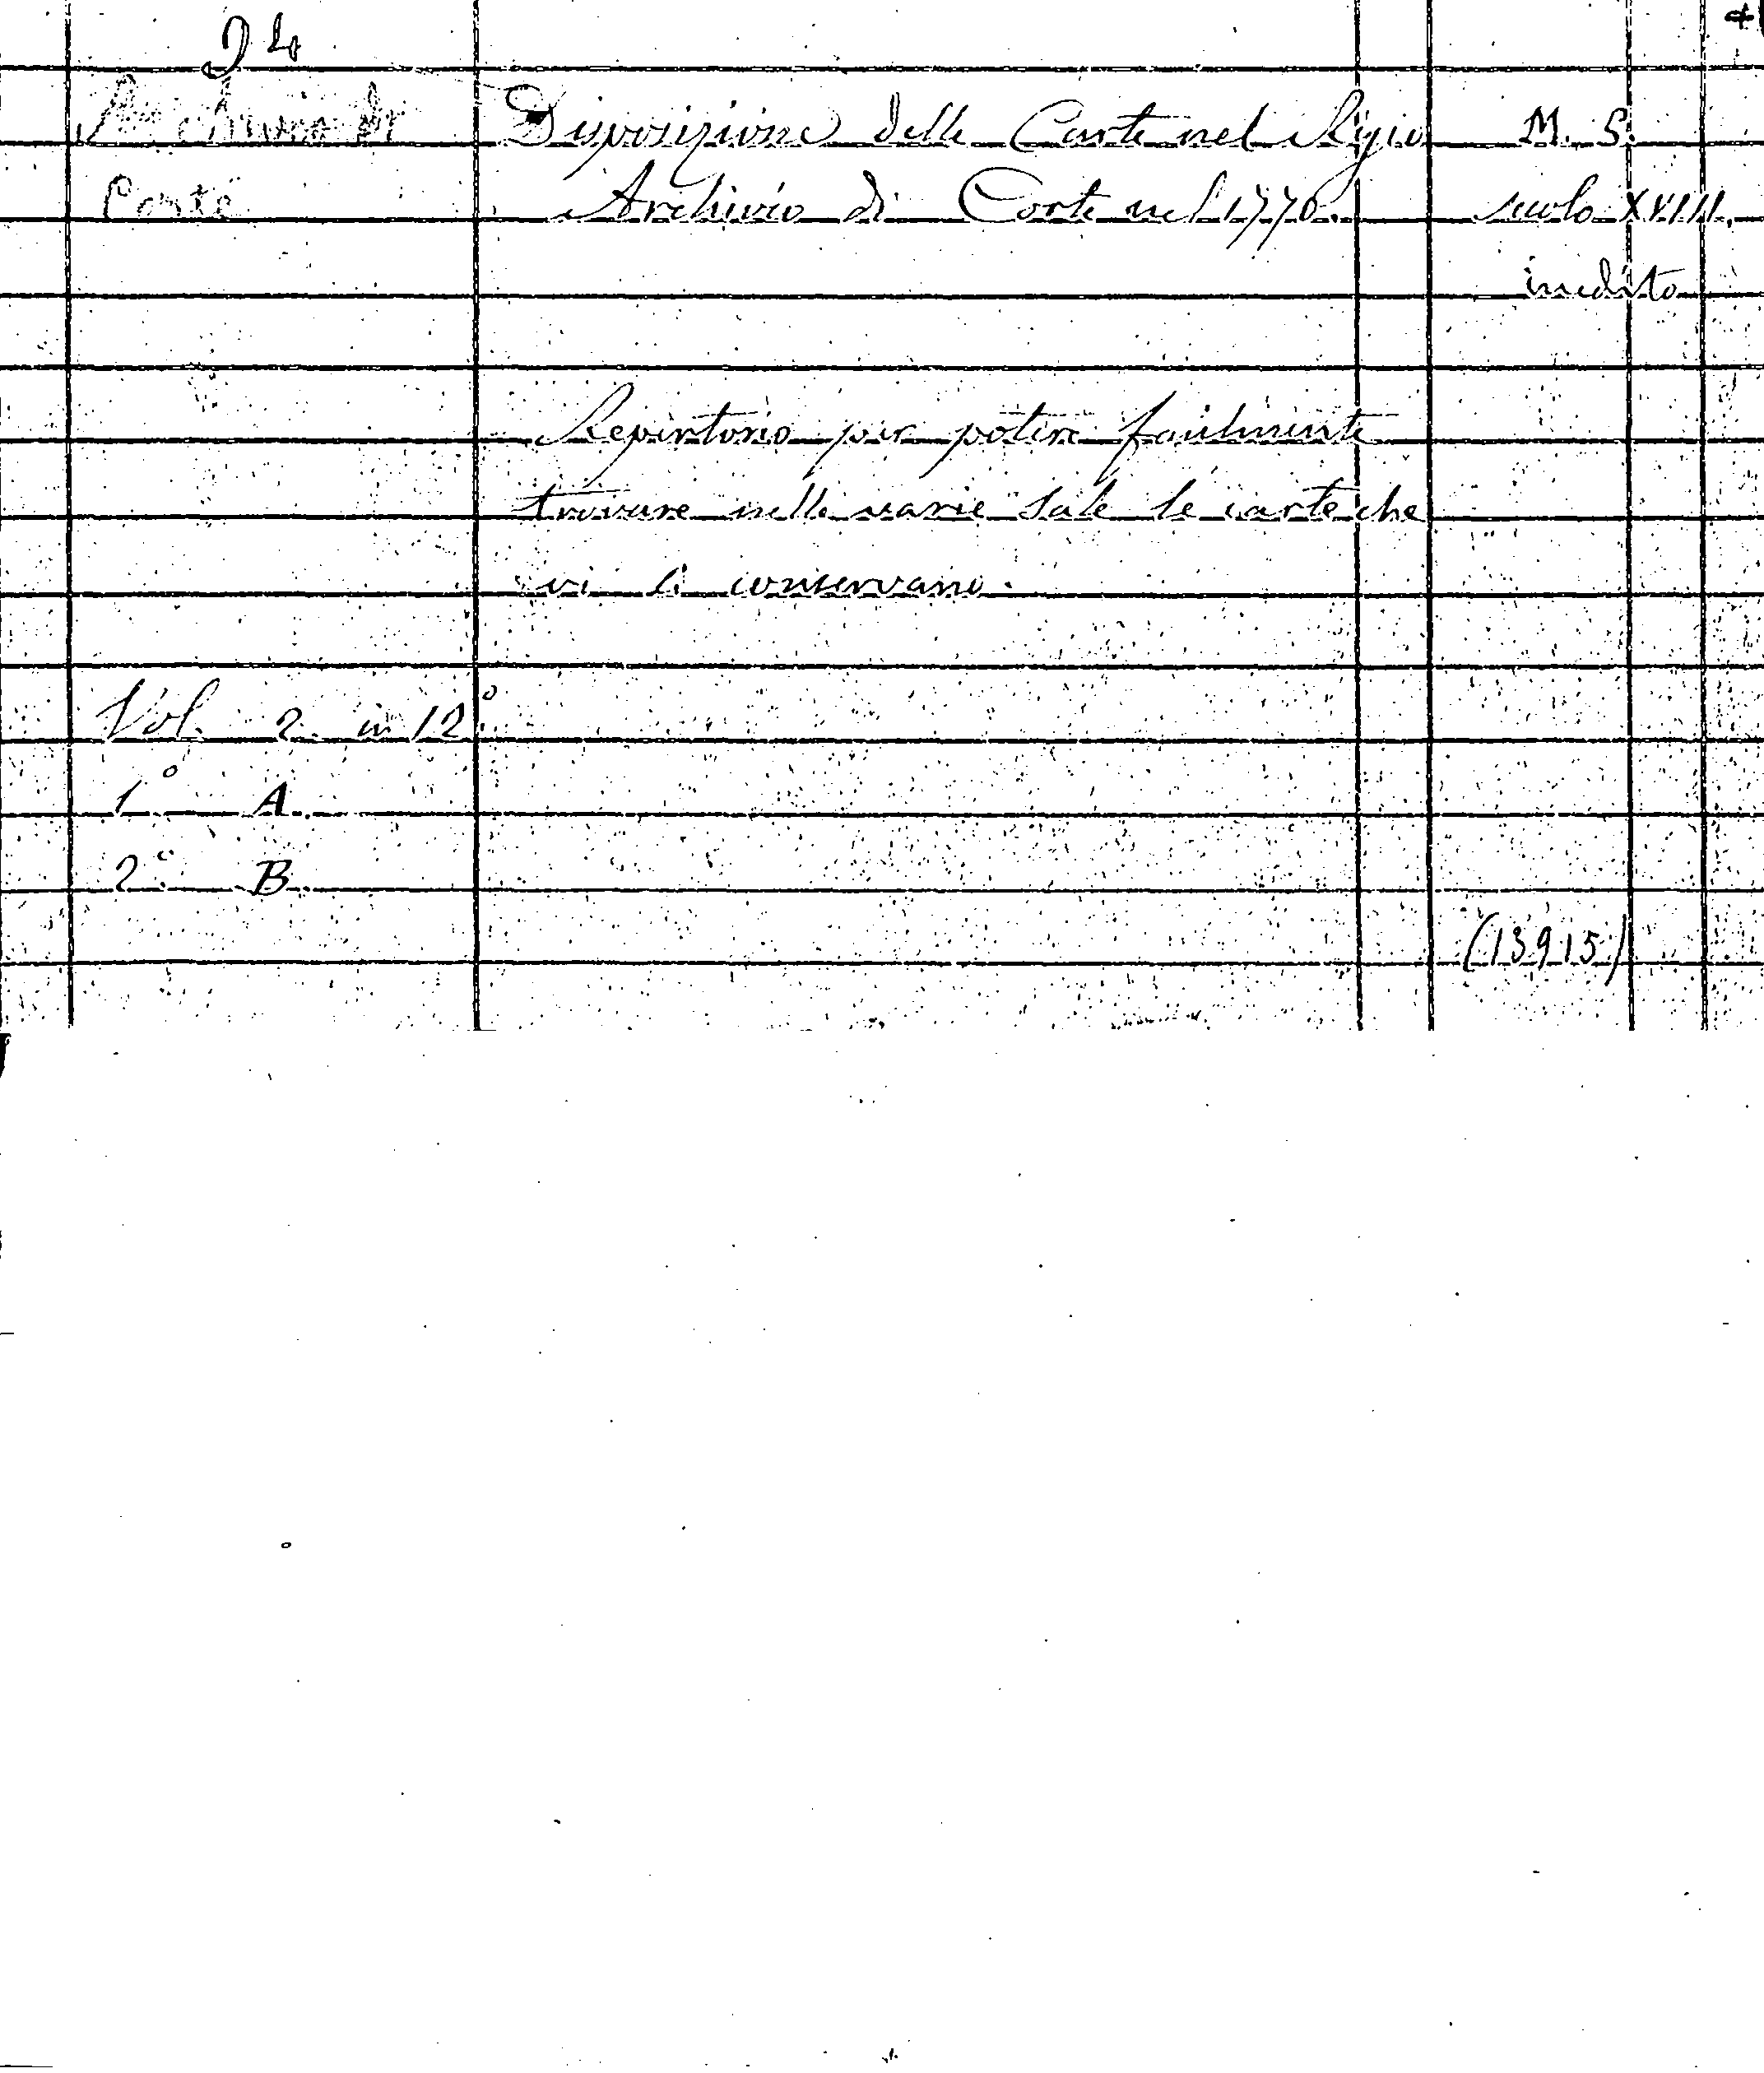 94
Archivio di Disposizione delle Carte nel Regio M. S.
Corte Archivio di Corte nel 1770. secolo XVIII.
inedito
Repertorio per potere facilmente
trovare nelle varie Sale le carte che
vi si conservano.
Vol. 2. in 12.°
1° A.
2° B.
(13915)